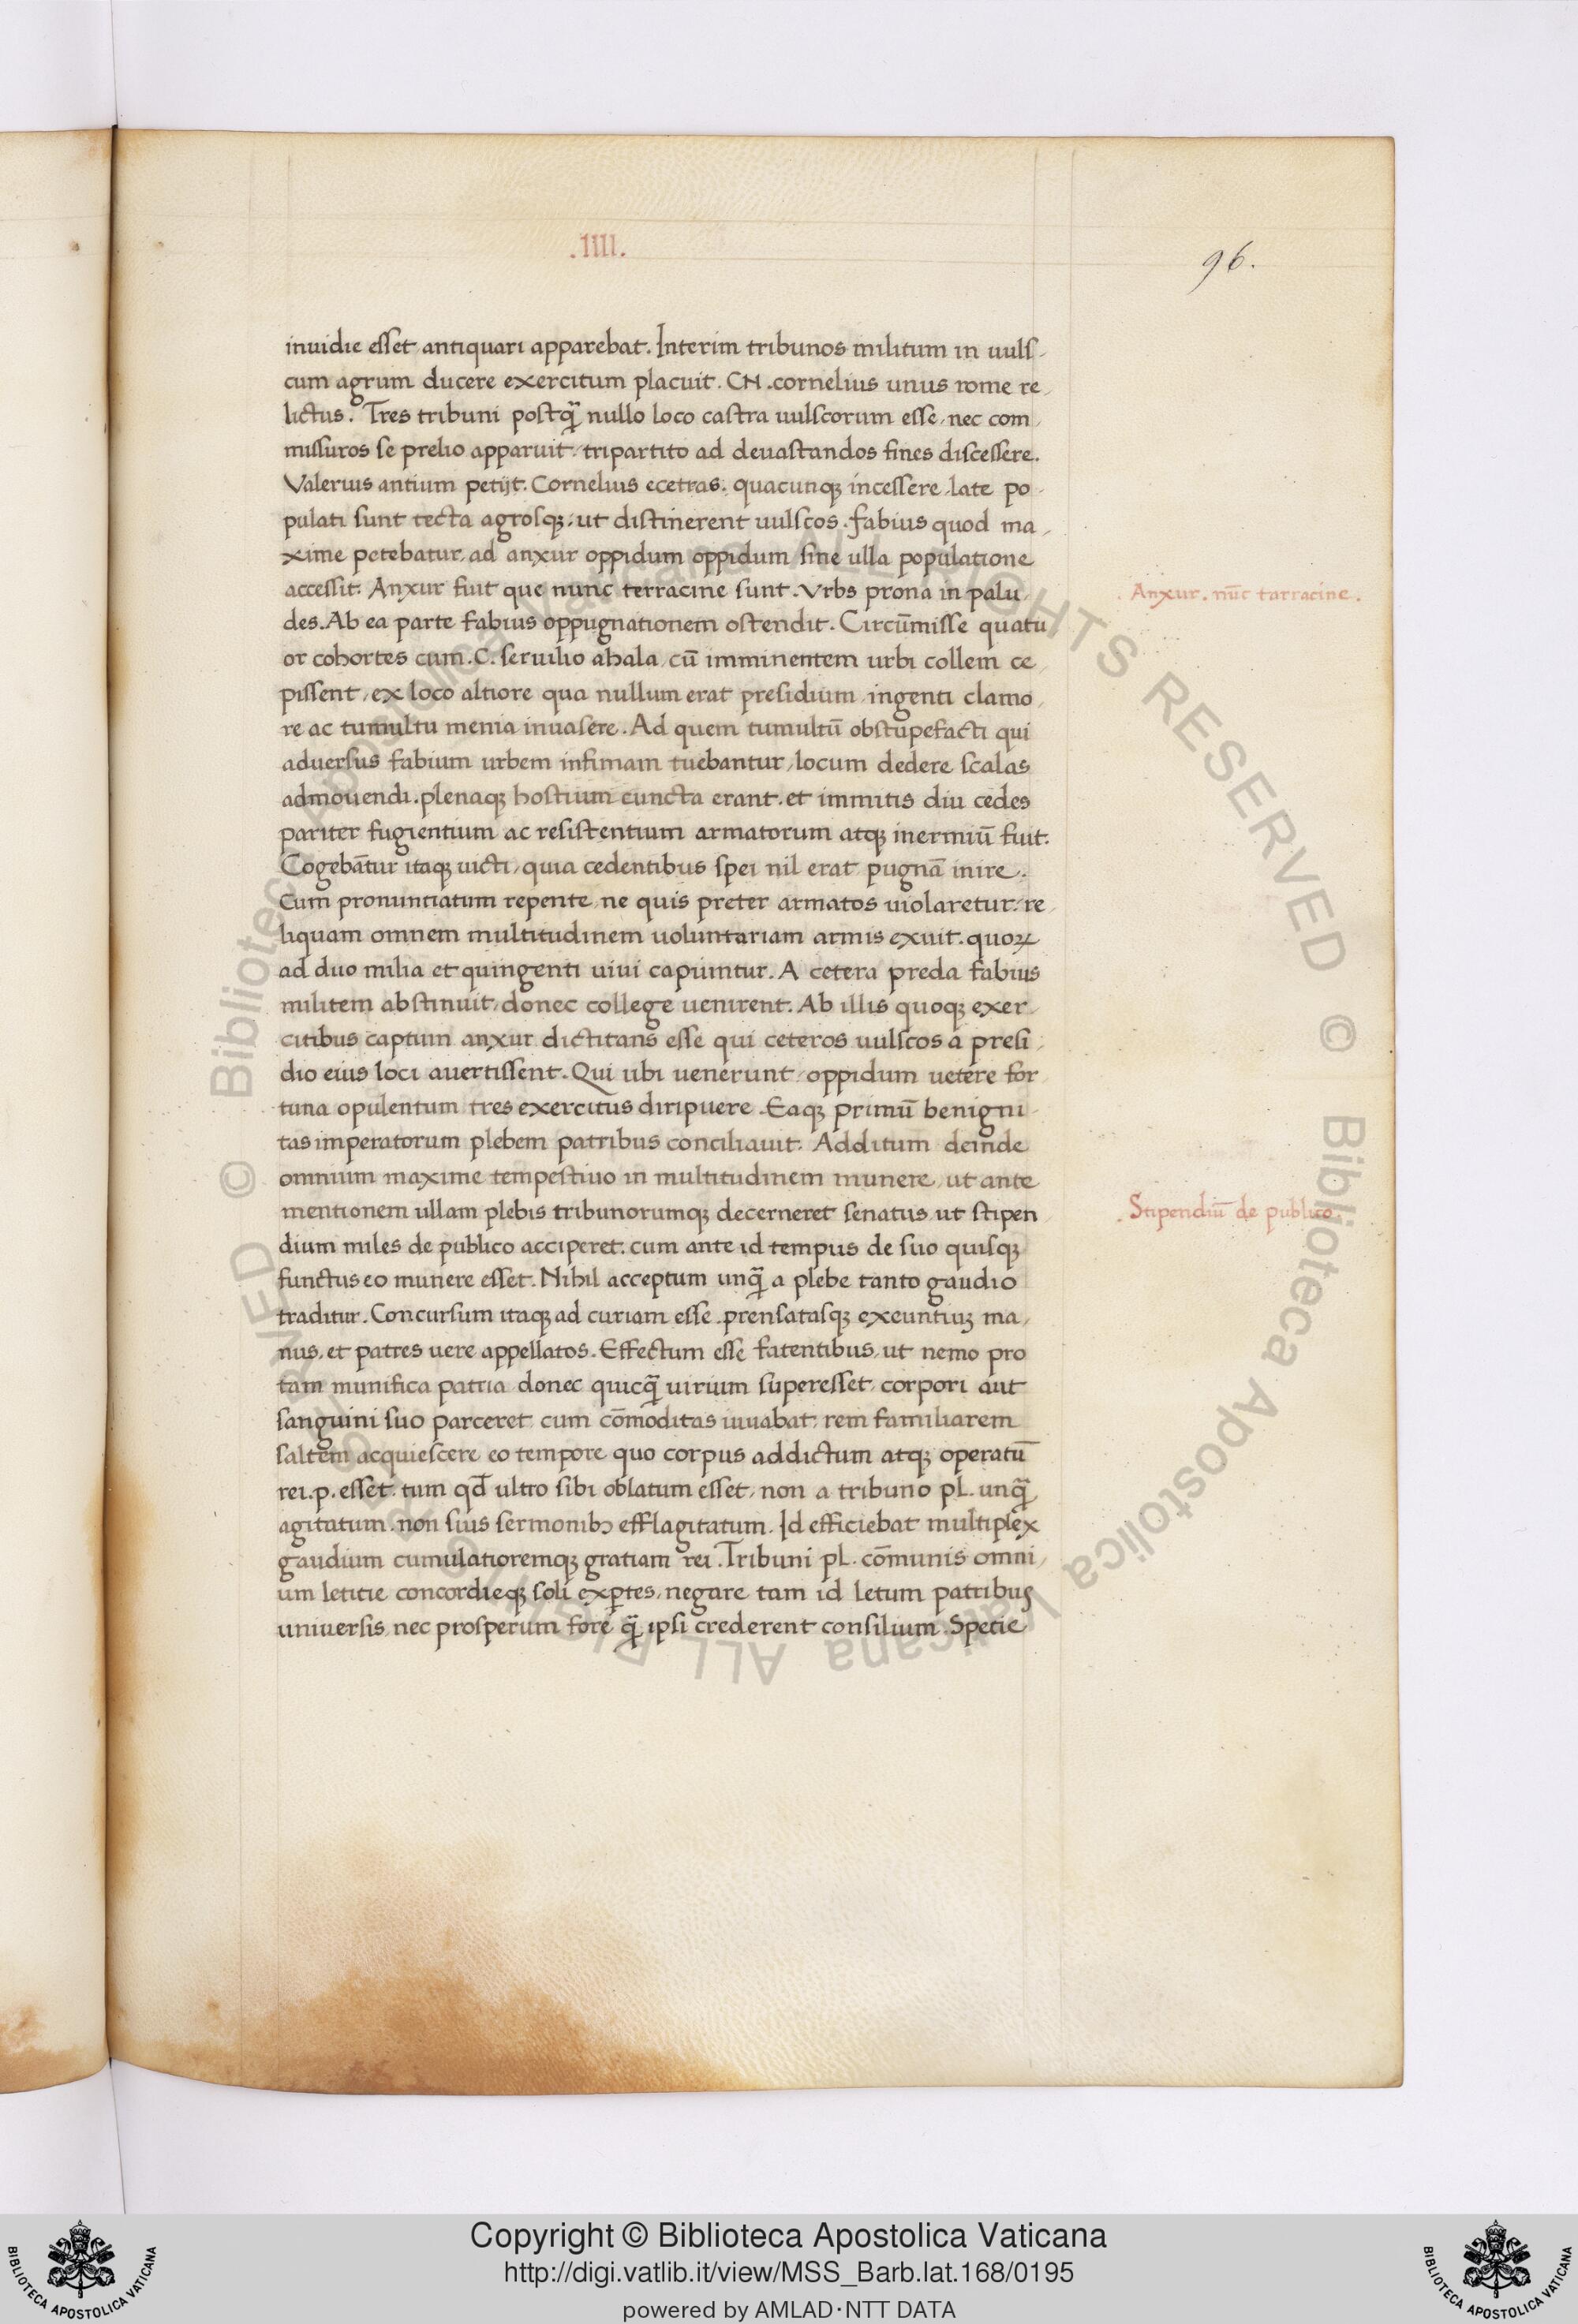 .IIII.
96.
inuidie esset antiquari apparebat. Interim tribunos militum in uuls-
cum agrum ducere exercitum placuit. CN. cornelius unus rome re-
lictus. Tres tribuni postq̃ nullo loco castra uulscorum esse, nec com-
missuros se prelio apparuit, tripartito ad deuastandos fines discessere.
Valerius antium petijt. Cornelius ecetras. quacunq; incessere late po-
pulati sunt tecta agrosq; ut distinerent uulscos. fabius quod ma-
xime petebatur, ad anxur oppidum oppidum sine ulla populatione
accessit. Anxur fuit que nunc terracine sunt. Vrbs prona in palu-
Anxur. nūc tarracine.
des. Ab ea parte fabius oppugnationem ostendit. Circūmisse quatu
or cohortes cum .C. seruilio ahala, cū imminentem urbi collem ce-
pissent, ex loco altiore qua nullum erat presidium, ingenti clamo-
re ac tumultu menia inuasere. Ad quem tumultū obstupefacti qui
aduersus fabium urbem infimam tuebantur, locum dedere scalas
admouendi. plenaq; hostium cuncta erant. et immitis diu cedes
pariter fugientium ac resistentium armatorum atq; inermiū fuit.
Cogebātur itaq; uicti, quia cedentibus spei nil erat pugnā inire.
Cum pronuntiatum repente, ne quis preter armatos uiolaretur, re-
liquam omnem multitudinem uoluntariam armis exuit. quoꝝ
ad duo milia et quingenti uiui capiuntur. A cetera preda fabius
militem abstinuit, donec college uenirent. Ab illis quoq; exer-
citibus captum anxur dictitans esse qui ceteros uulscos a presi-
dio eius loci auertissent. Qui ubi uenerunt, oppidum uetere for
tuna opulentum tres exercitus diripuere. Eaq; primū benigni-
tas imperatorum plebem patribus conciliauit. Additum deinde
omnium maxime tempestiuo in multitudinem munere, ut ante
mentionem ullam plebis tribunorumq; decerneret senatus, ut stipen
Stipendiū de publico.
dium miles de publico acciperet. cum ante id tempus de suo quisq;
functus eo munere esset. Nihil acceptum unq̃ a plebe tanto gaudio
traditur. Concursum itaq; ad curiam esse. prensatasq; exeuntiuȝ ma-
nus, et patres uere appellatos. Effectum esse fatentibus, ut nemo pro
tam munifica patria donec quicq̃ uirium superesset, corpori aut
sanguini suo parceret, cum cōmoditas iuuabat, rem familiarem
saltem acquiescere eo tempore quo corpus addictum atq; operatū
rei .p. esset. tum qđ ultro sibi oblatum esset, non a tribuno pl. unq̃
agitatum, non suis sermonibꝫ efflagitatum. Id efficiebat multiplex
gaudium cumulatioremq; gratiam rei. Tribuni pl. cōmunis omni-
um letitie concordieq; soli exꝑtes, negare tam id letum patribus
uniuersis, nec prosperum fore q̃ ipsi crederent consilium. Spetie
© Biblioteca Apostolica Vaticana ALL RIGHTS RESERVED © Biblioteca Apostolica Vaticana ALL RIGHTS RESERVED
BIBLIOTECA APOSTOLICA VATICANA
Copyright © Biblioteca Apostolica Vaticana
http://digi.vatlib.it/view/MSS_Barb.lat.168/0195
powered by AMLAD·NTT DATA
BIBLIOTECA APOSTOLICA VATICANA